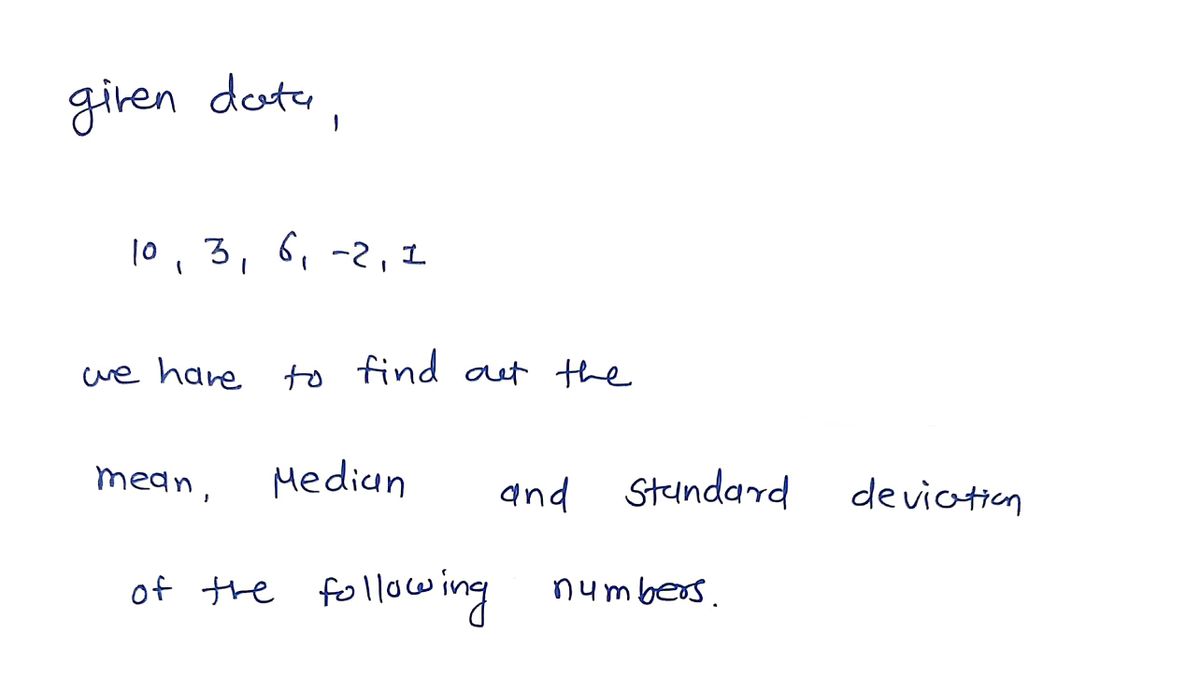 given data,
10, 3, 6, -2, 1
we have to find out the
mean, Median and Standard deviation
of the following numbers.